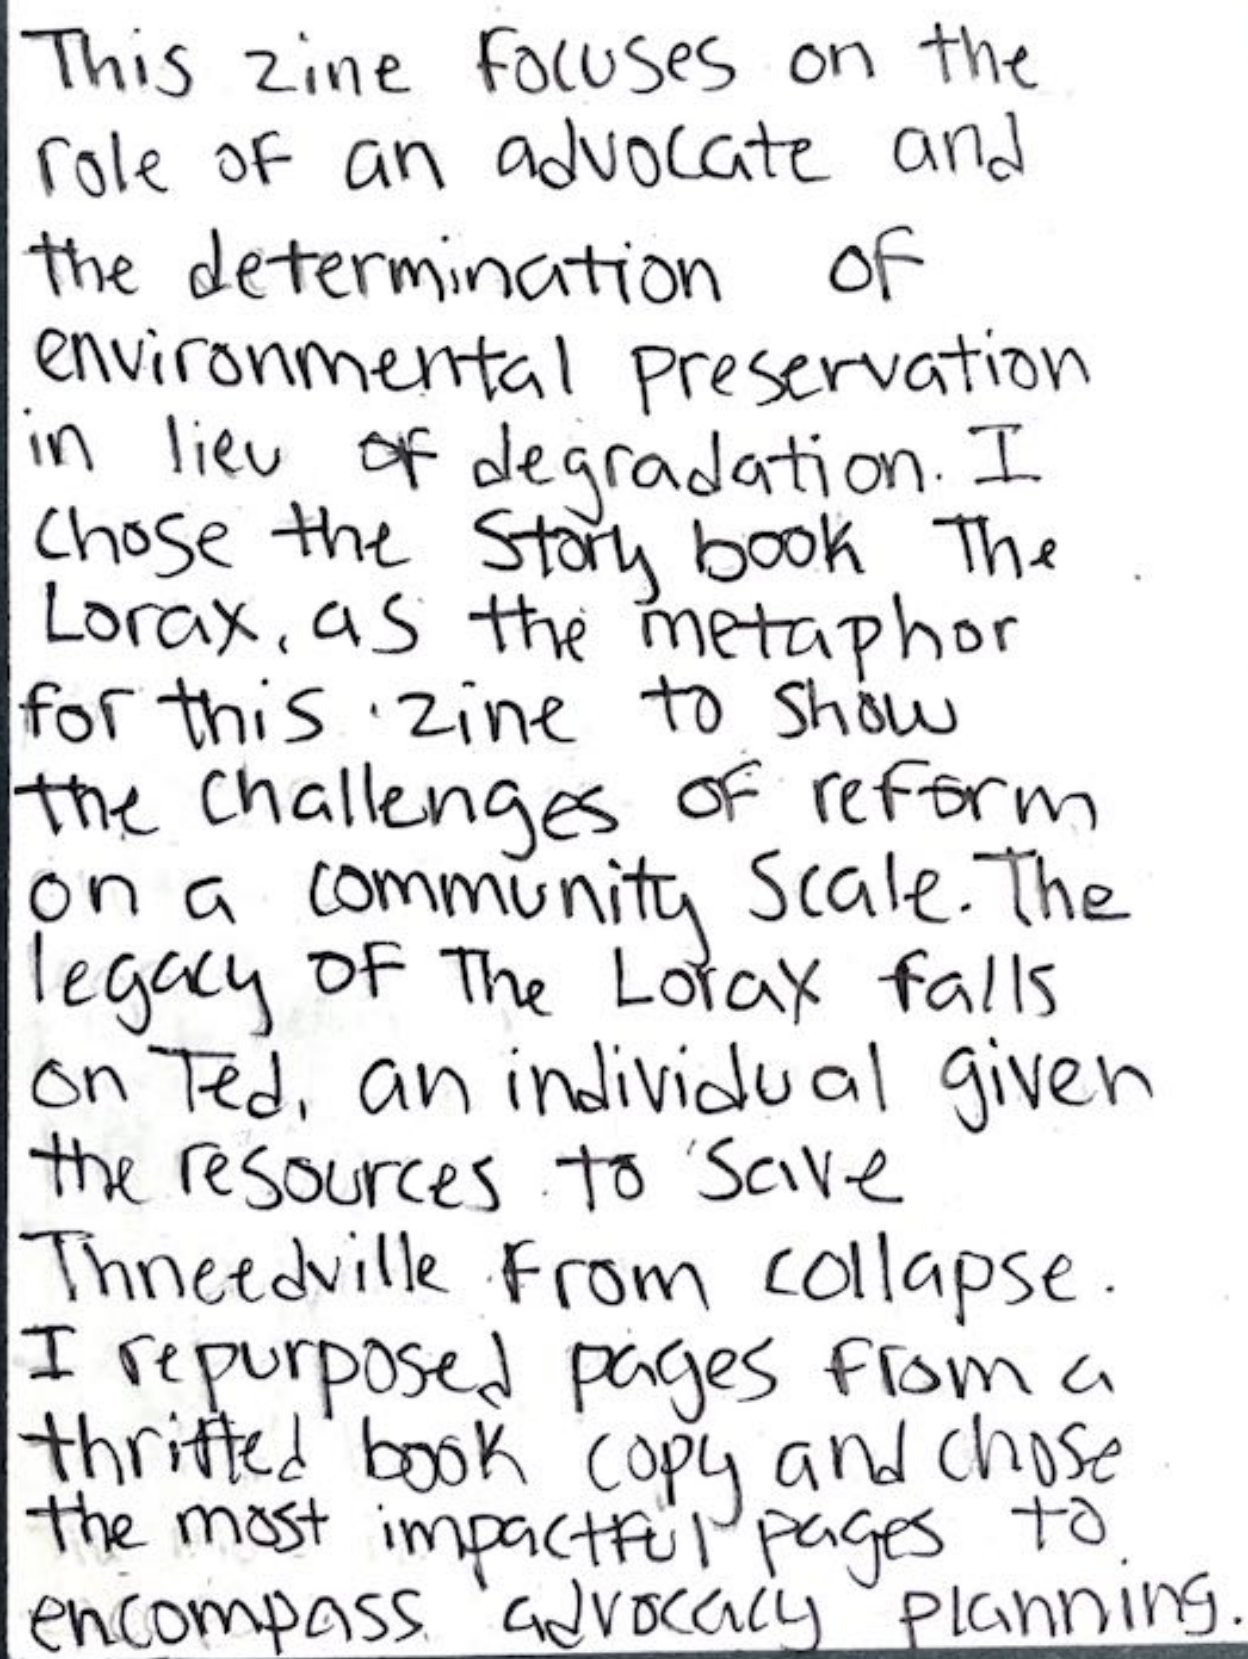 This zine focuses on the
role of an advocate and
the determination of
environmental preservation
in lieu of degradation. I
chose the Story book The
Lorax, as the metaphor
for this zine to show
the challenges of reform
on a community scale. The
legacy of The Lorax falls
on Ted, an individual given
the resources to save
Thneedville from collapse.
I repurposed pages from a
thrifted book copy and chose
the most impactful pages to
encompass advocacy planning.